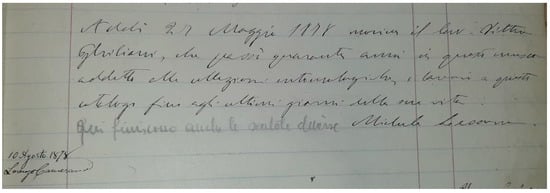 Addì 27 Maggio 1878 moriva il Cav. Vittore
Ghiliani, che passò quaranta anni in questo museo
addetto alle collezioni entomologiche, e lavorò a questo
catalogo fino agli ultimi giorni della sua vita.
Qui finiscono anche le scatole diverse Michele Lessona
10 Agosto 1878
Lorenzo Camerano